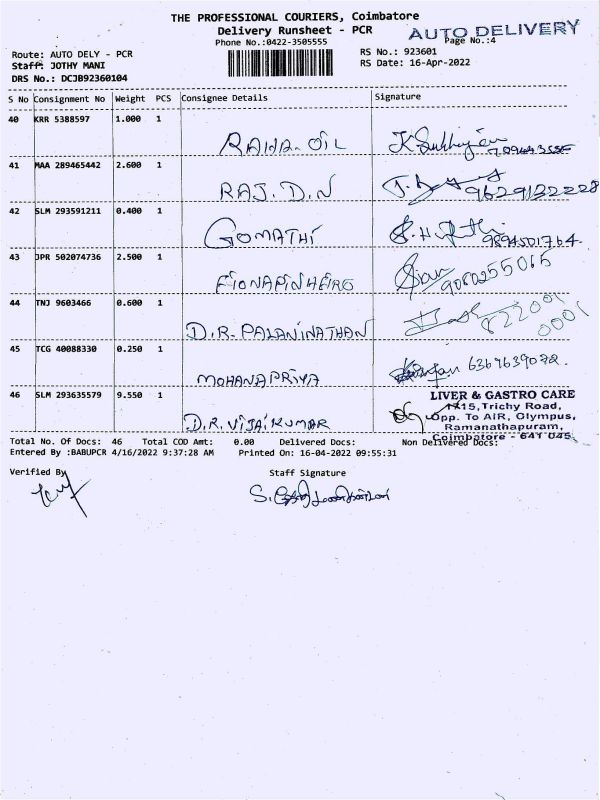 THE PROFESSIONAL COURIERS, Coimbatore
Delivery Runsheet - PCR
AUTO DELIVERY
Phone No.:0422-3505555
Page No.:4
Route: AUTO DELY - PCR
RS No.: 923601
Staff: JOTHY MANI
RS Date: 16-Apr-2022
DRS No.: DCJB92360104
S No Consignment No Weight PCS Consignee Details Signature
40 KRR 5388597 1.000 1
OIL
41 MAA 289465442 2.600 1
RAJ. D. N
9629132228
42 SLM 293591211 0.400 1
GOMATHI
9894501764.
43 JPR 502074736 2.500 1
FIONAPINHEIRO
9080255065
44 TNJ 9603466 0.600 1
D.R. PALANINATHAN
822001
0001
45 TCG 40088330 0.250 1
MOHANAPRIYA
6367639072.
46 SLM 293635579 9.550 1
D.R. VIJAIKUMAR
LIVER & GASTRO CARE
1415, Trichy Road,
Opp. To AIR, Olympus,
Ramanathapuram,
Coimbatore - 641 045
Total No. Of Docs: 46 Total COD Amt: 0.00 Delivered Docs: Non Delivered Docs:
Entered By :BABUPCR 4/16/2022 9:37:28 AM Printed On: 16-04-2022 09:55:31
Verified By
Staff Signature